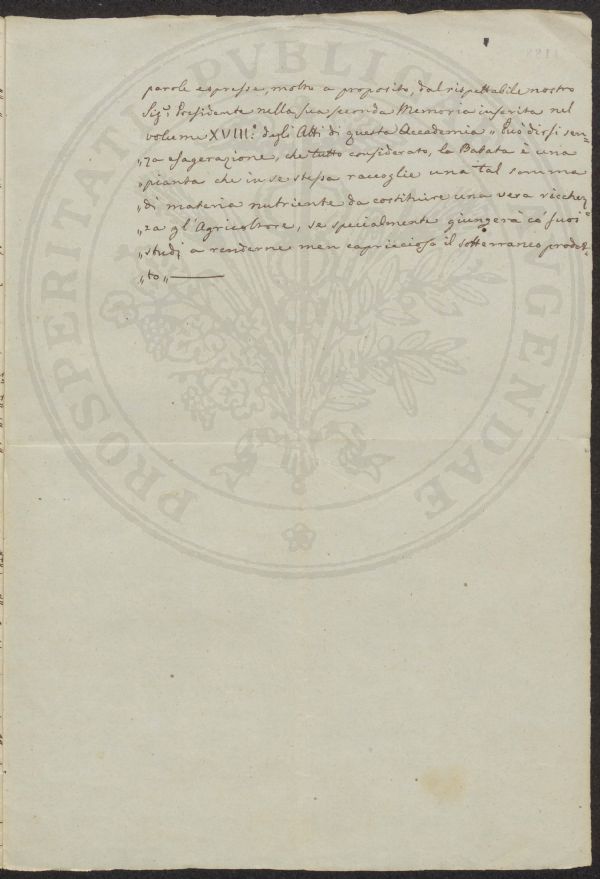 parole espresse, molto a proposito, dal rispettabile nostro
Sig.r Presidente nella sua seconda Memoria inserita nel
volume XVIII.° degli Atti di questa Accademia „ Può dirsi sen-
„ za esagerazione, che tutto considerato, la Batata è una
„ pianta che in se stessa raccoglie una tal somma
„ di materia nutriente da costituire una vera ricchez-
„ za pl' Agricoltore, se specialmente giungerà co' suoi
„ studj a renderne men capriccioso il sotterraneo prodot-
„ to „
PROSPERITATI PVBLIC GENDAE